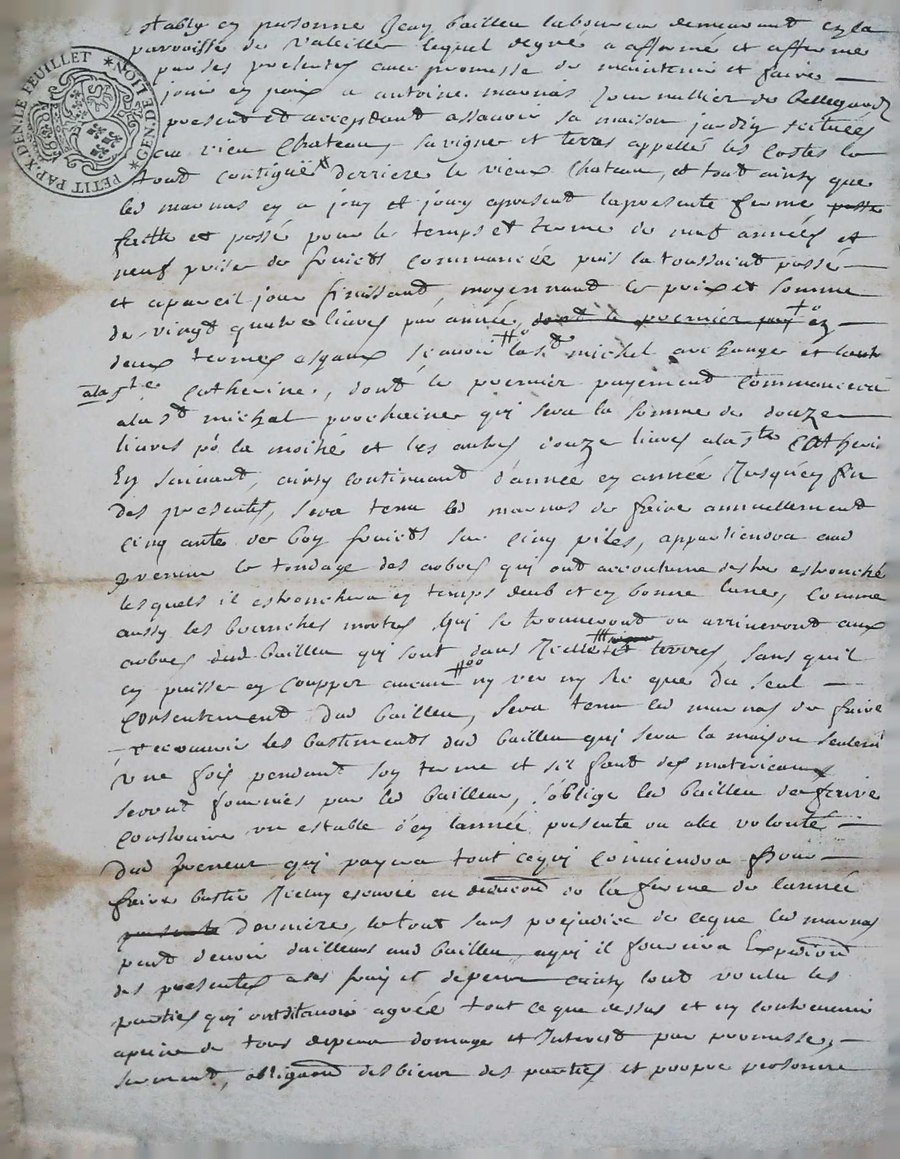 PETIT PAP. X. DEN. LE FEUILLET * GEN. DE LION *
Estably en personne Jean bailleu laboureur demeurant en la
parroisse de Valeille lequel degré a affermé et afferme
par ses presentes avec promesse de maintenir et faire
jouir en paix a antoine marnas Journallier de Bellegarde
present et acceptant assavoir sa maison jardin scitués
au vieu Chateau, sa vigne et terres appellé les Costes le
tout contiguë derriere le vieux Chateau, et tout ainsy que
led marnas en a jouy et jouy apresent la presente ferme
faitte et passé pour le temps et terme de neuf années et
neuf prise de fruicts commancée puis la toussaint passé
et a pareil jour finissant, moyennant le prix et somme
de vingt quatre livres par année, dont le premier pay en
deux termes esgaux scavoir la st michel archange et
a la ste Catherine, dont le premier payement commancera
a la st michel prochaine qui sera la somme de douze
livres pr la moitié et les autres douze livres a la ste Catheri
En suivant, ainsy continuant d'année en année Jusqu'en fin
des presentes, sera tenu led marnas de faire annuellement
cinq ante de bon fruicts sur cinq piles, appartiendra aud
preneur le tondage des arbres qui ont accoutume destre estronché
lesquels il estronchera en temps deub et en bonne lune, comme
aussy les branches mortes qui se trouveront ou arriveront aux
arbres dud bailleu qui sont dans terres, sans quil
en puisse en coupper aucun ny ver ny sec que du seul
consentement dud bailleu, sera tenu led marnas de faire
recouvrir les bastiments dud bailleu qui sera la maison seulem
une fois pendant son terme et s'il faut des materieaux
seront fournies par led bailleu, s'oblige led bailleu de faire
construire un estable d'en l'année presente ou a la volonté
dud preneur qui payera tout ce qui conviendra pour
faire bastir en de la ferme de l'année
derniere, le tout sans prejudice de ce que led marnas
peut devoir dailleurs aud bailleu a qui il fournira Expedion
des presentes a ses frais et depens ainsy tout voulu les
parties qui ont agreé tout ce que dessus et ny contrevenir
a peine de tous depens domage et Interest par promesse,
serment, obligaon des biens des parties et propre personne